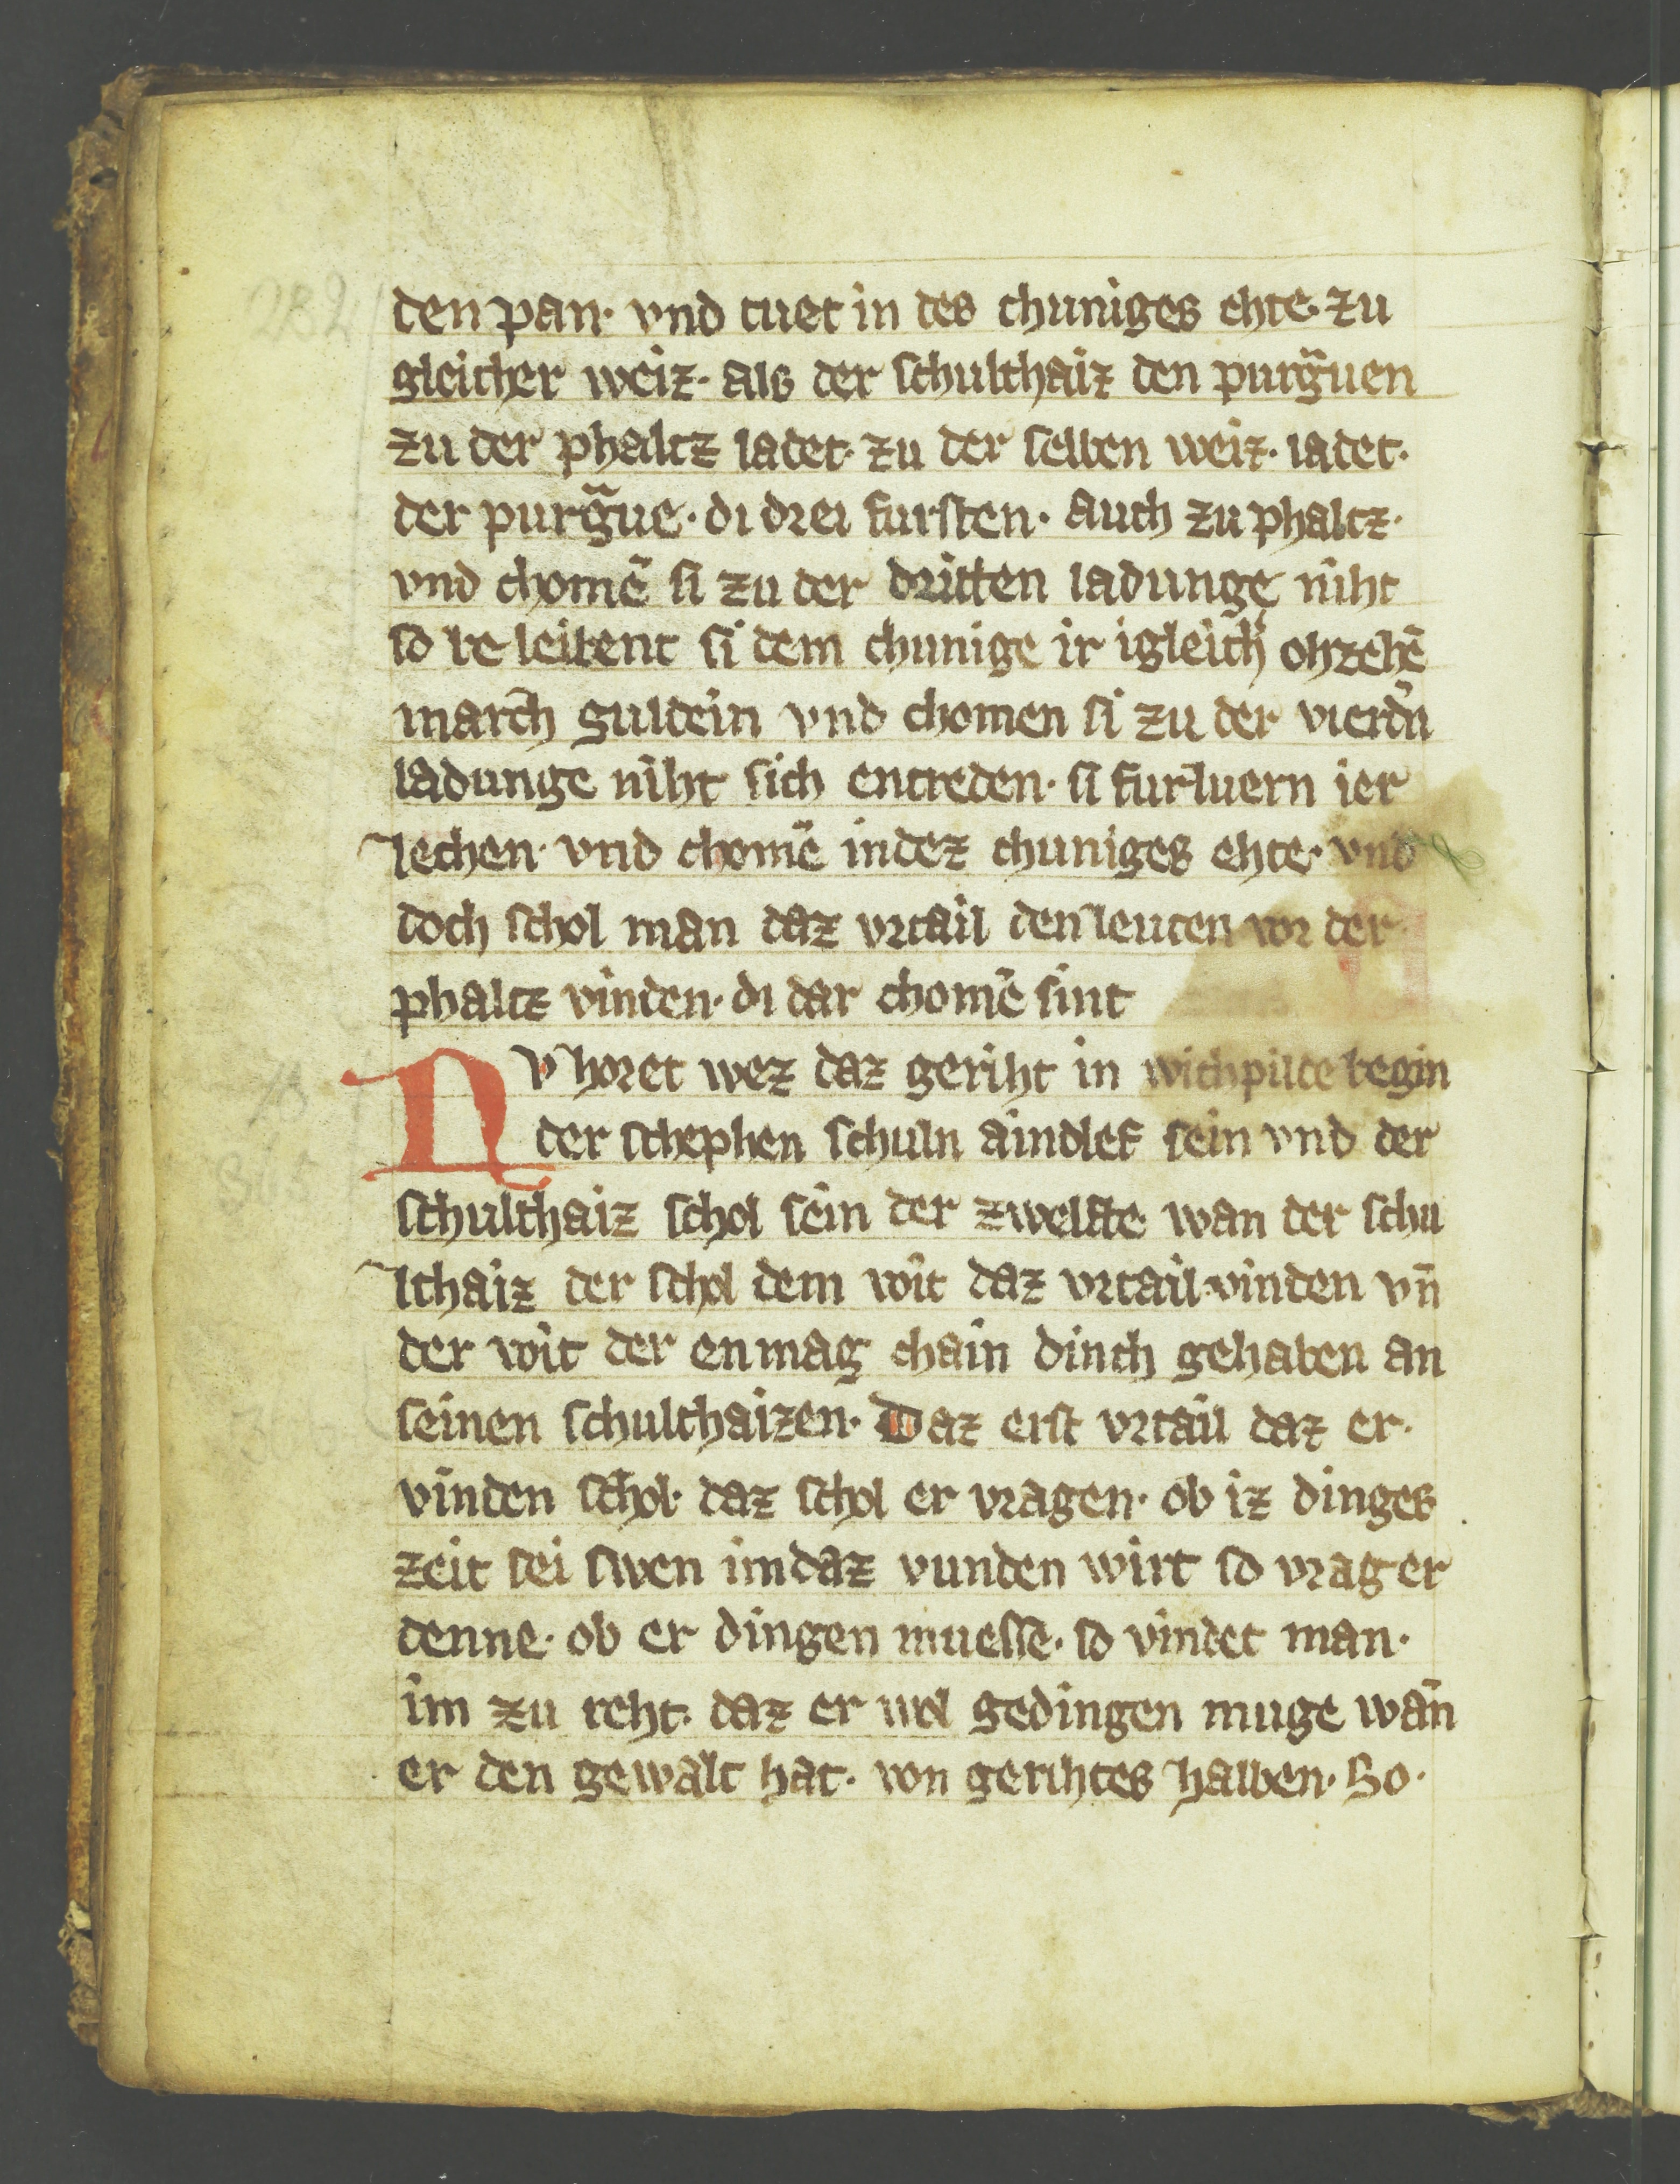 den pan· vnd tuet in des chuniges ehte· zu
gleicher weiz· als der schulthaiz den purg̃uen
zu der phaltz ladet· zu der selben weiz· ladet·
der purg̃ue· di drei fursten· auch zu phaltz·
vnd chomē si zu der dritten ladunge niht
so be leibent si dem chunige ir igleich̕ ohzehē
march guldein vnd chomen si zu der vierdn̄
ladunge niht sich entreden· si furluern ier
lechen· vnd chomē indez chuniges ehte· vnd
doch schol man daz vrtail den leuten vor der
phaltz vinden· di dar chomē sint
Nv horet wez daz geriht in wichpilde begin
der schephen schuln aindlef sein vnd der
schulthaiz schol sein der zwelfte wan der schu
lthaiz der schol dem voit daz vrtail vinden vn̄
der voit der en mag chain dinch gehaben an
seinen schulthaizen· Daz erst vrtail daz er·
vinden schol· daz schol er vragen· ob iz dinges
zeit sei swen im daz vunden wirt so vrag er
denne· ob er dingen muesse· so vindet man·
im zu reht· daz er wol gedingen muge wan
er den gewalt hat· von gerihtes halben· So·